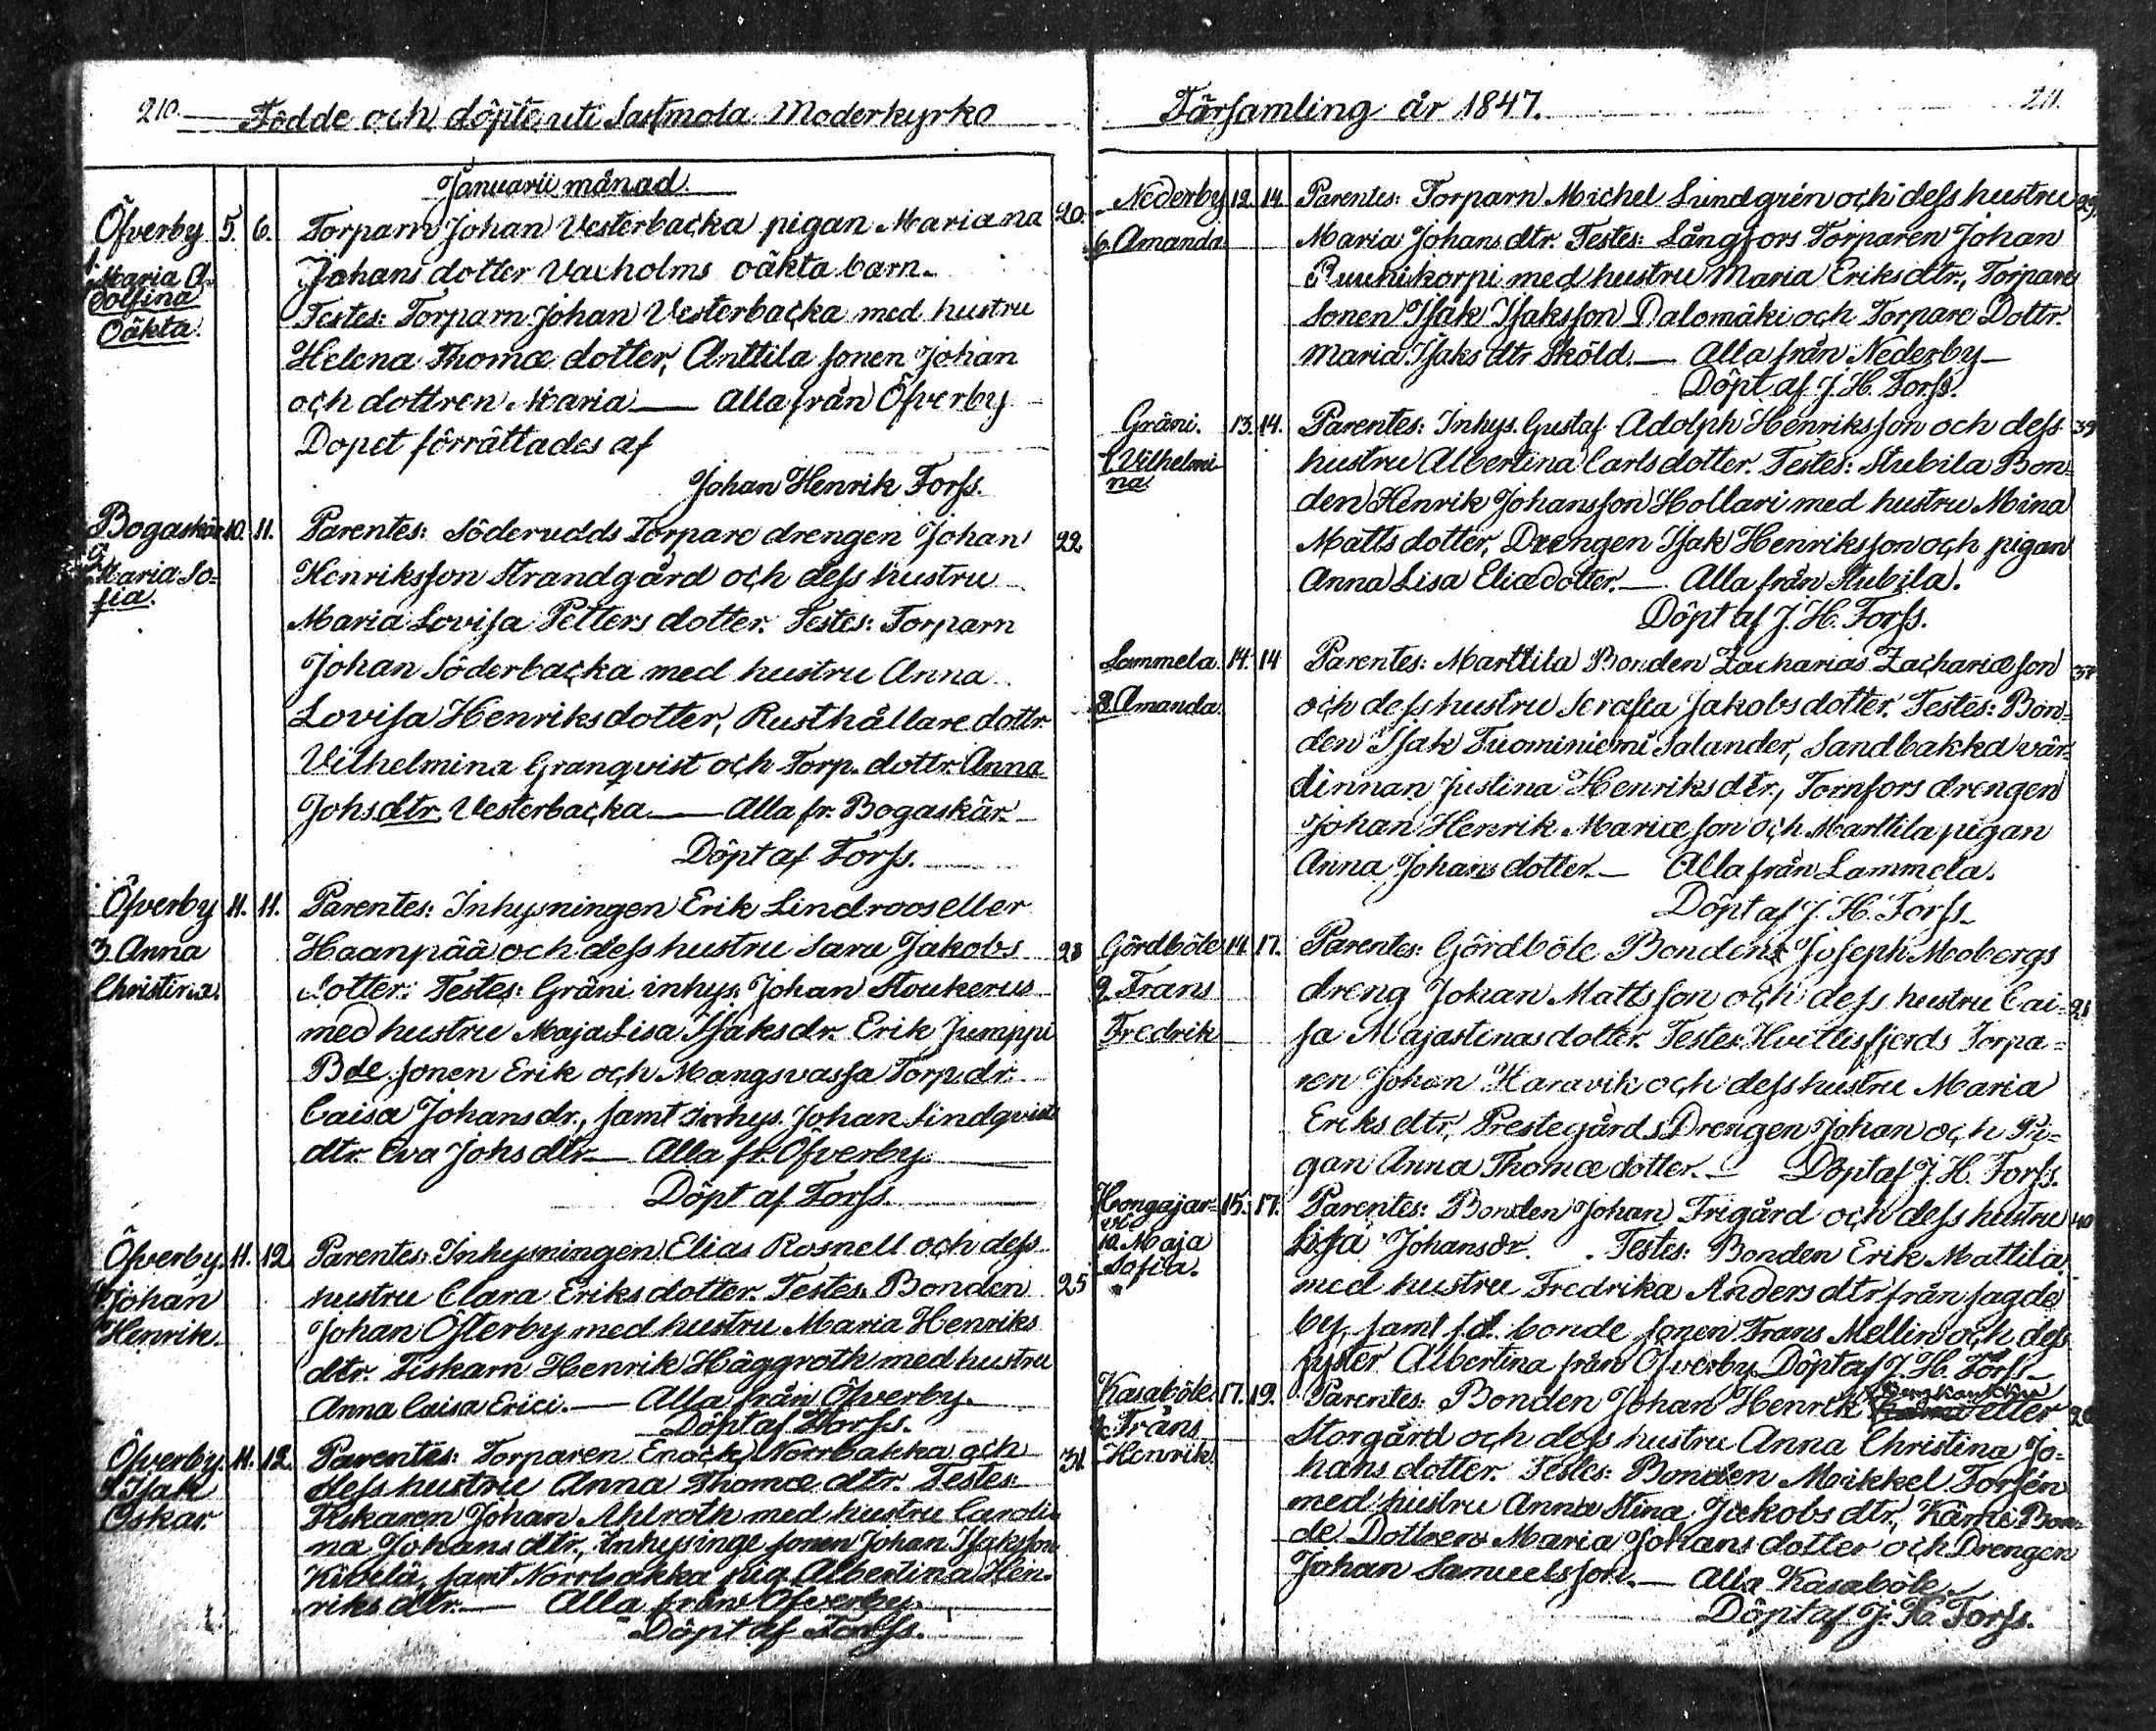 210. Födde och döpte uti Sastmola Moderkyrko
Januarii månad.
Öfverby 5. 6. Torparn Johan Vesterbacka pigan Mariana 20.
1. Maria A- Johans dotter Vaxholms oäkta barn.
dolfina Testes: Torparn Johan Vesterbacka med hustru
Oäkta. Helena Thomæ dotter, Anttila sonen Johan
och dottren Maria — Alla från Öfverby
Dopet förrättades af
Johan Henrik Forss.
Bogaskär 10. 11. Parentes: Söderudds Torpare drengen Johan 22.
2. Maria So= Henriksson Strandgård och dess hustru
fia. Maria Lovisa Petters dotter. Testes: Torparn
Johan Söderbacka med hustru Anna
Lovisa Henriksdotter, Rusthållare dottr.
Vilhelmina Granqvist och Torp. dottr. Anna
Johs dtr. Vesterbacka — Alla fr. Bogaskär.
Döpt af Forss.
Öfverby 11. 11. Parentes: Inhysningen Erik Lindroos eller
3. Anna Haanpää och dess hustru Sara Jakobs 28
Christina. dotter. Testes: Gräni inhys. Johan Stoukerus
med hustru Maja Lisa Isaks dr. Erik Jumppi
Bde sonen Erik och Mangsvassa Torp. dr.
Caisa Johans dr., samt Inhys. Johan Lindqvists
dtr. Eva Johs dtr. — Alla fr. Öfverby
Döpt af Forss.
Öfverby. 11. 12 Parentes: Inhysningen Elias Rosnell och dess
4. Johan hustru Clara Eriks dotter. Testes: Bonden 25
Henrik. Johan Österby med hustru Maria Henriks
dtr. Fiskarn Henrik Häggroth med hustru
Anna Caisa Erici. — Alla från Öfverby.
Döpt af Forss.
Öfverby. 11. 12. Parentes: Torparen Enock Norrbakka och 31.
5. Isak dess hustru Anna Thomæ dtr. Testes:
Oskar. Fiskaren Johan Ahlroth med hustru Caroli=
na Johans dtr., Inhysinge sonen Johan Isaksson
Kivelä, samt Norrbakka pig. Albertina Hen-
riks dtr. — Alla från Öfverby.
Döpt af Forss.
Församling år 1847. 211.
Nederby 12. 14. Parentes: Torparn Michel Lindgrén och dess hustru 29.
6. Amanda Maria Johans dtr. Testes: Långfors Torparen Johan
Ruunikorpi med hustru Maria Eriks dtr., Torpare
Sonen Isak Isaksson Dalomäki och Torpare Dottr.
Maria Isaks dtr. Sköld. — Alla från Nederby —
Döpt af J. H. Forss.
Gräni. 13. 14. Parentes: Inhys. Gustaf Adolph Henriksson och dess 39
7. Vilhelmi- hustru Albertina Carls dotter. Testes: Stubila Bon=
na. den Henrik Johansson Hollari med hustru Mina
Matts dotter, Drengen Isak Henriksson och pigan
Anna Lisa Eliædotter. — Alla från Stubila.
Döpt af J. H. Forss.
Lammela. 14. 14 Parentes: Marttila Bonden Zacharias Zachariæson 38
8. Amanda. och dess hustru Serafia Jakobs dotter. Testes: Bon=
den Isak Tuominiemi Salander, Sandbakka vär-
dinnan Justina Henriks dtr., Tornfors drengen
Johan Henrik Mariæ son och Marttila pigan
Anna Johans dotter. — Alla från Lammela.
Döpt af J. H. Forss.
Gördböle 14. 17. Parentes: Gördböle Bondens Joseph Mobergs
9. Frans dreng Johan Mattsson och dess hustru Cai= 28
Fredrik sa Majastinas dotter. Testes: Hvittisfjerds Torpa=
ren Johan Haravik och dess hustru Maria
Eriks dtr., Prestegårds Drengen Johan och Pi=
gan Anna Thomæ dotter. — Döpt af J. H. Forss.
Hongajar= 15. 17. Parentes: Bonden Johan Frigård och dess hustru 40
vi
10. Maja Lisa Johansdr. Testes: Bonden Erik Mattila
Sofia. med hustru Fredrika Anders dtr. från Lagde
by, samt f.d. bonde sonen Frans Mellin och dess
syster Albertina från Öfverby. Döpt af J. H. Forss —
Kasaböle. 17. 19. Parentes: Bonden Johan Henrik eller
11. Frans Storgård och dess hustru Anna Christina Jo-
Henrik. hans dotter. Testes: Bonden Mikkel Forsén
med hustru Anna Stina Jakobs dtr., Kärne Bon=
de Dottren Maria Johans dotter och Drengen
Johan Samuelsson. — Alla Kasaböle.
Döpt af J. H. Forss.